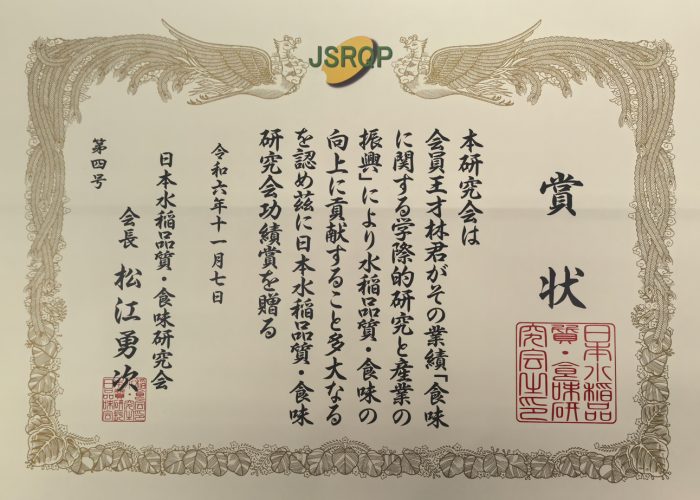 JSRQP
賞状
本研究会は
会員王才林君がその業績「食味
に関する学際的研究と産業の
振興」により水稲品質・食味の
向上に貢献すること多大なる
を認め茲に日本水稲品質・食味
研究会功績賞を贈る
令和六年十一月七日
日本水稲品質・食味研究会
会長 松江勇次
第四号
日本水稲品
質・食味研
究会之印